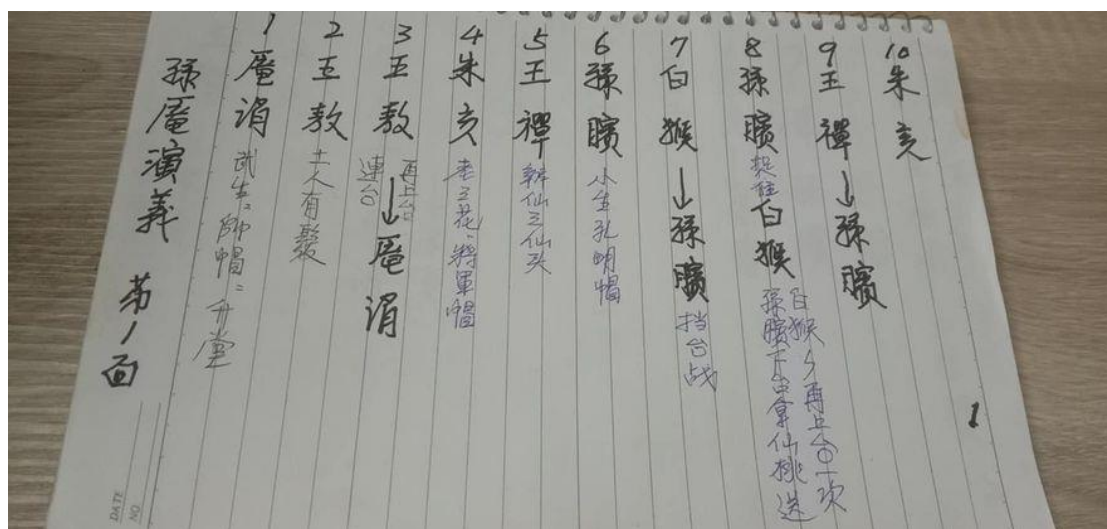 孫龐演義 第1面
1 龐涓 武生:帥帽:升堂
2 王敖 土人有髮
3 王敖↓龐涓
再上台
連台
4 朱亥 老三花、将軍帽
5 王禪 辦仙三仙头
6 孫臏 小生孔明帽
7 白猴↓孫臏 挡台战
8 孫臏捉住白猴
白猴再上台一次
孫臏下台拿仙桃送
9 王禪↓孫臏
10 朱亥
1
DATE
NO